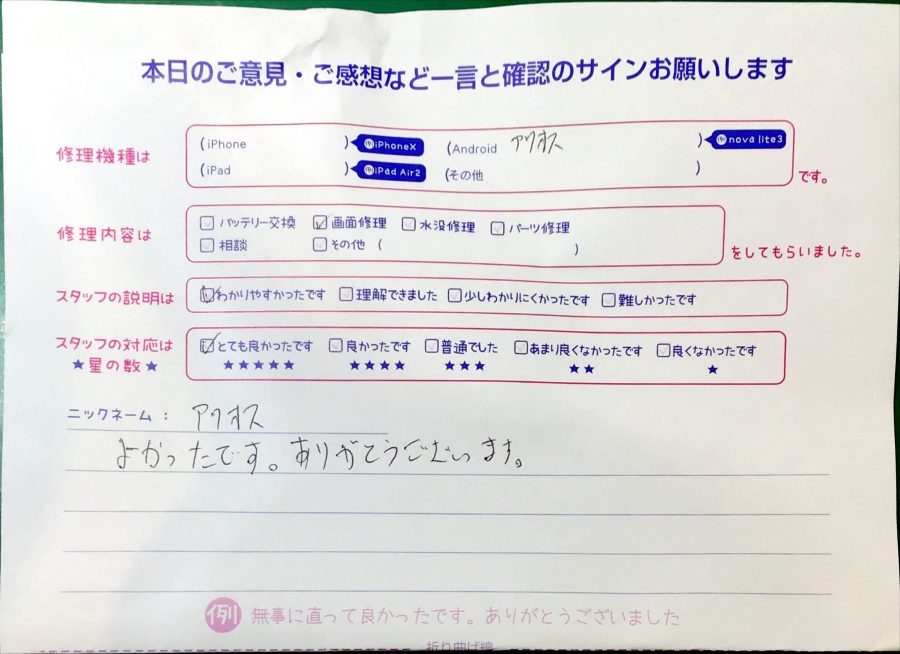 本日のご意見・ご感想など一言と確認のサインお願いします
修理機種は
(iPhone ) iPhoneX (Android アクオス ) nova lite3
(iPad ) iPad Air2 (その他 )
です。
修理内容は
バッテリー交換 画面修理 水没修理 パーツ修理
相談 その他 ( )
をしてもらいました。
スタッフの説明は わかりやすかったです 理解できました 少しわかりにくかったです 難しかったです
スタッフの対応は とても良かったです 良かったです 普通でした あまり良くなかったです 良くなかったです
★星の数★ ★★★★★ ★★★★ ★★★ ★★ ★
ニックネーム： アクオス
よかったです。ありがとうございます。
例 無事に直って良かったです。ありがとうございました
折り曲げ線